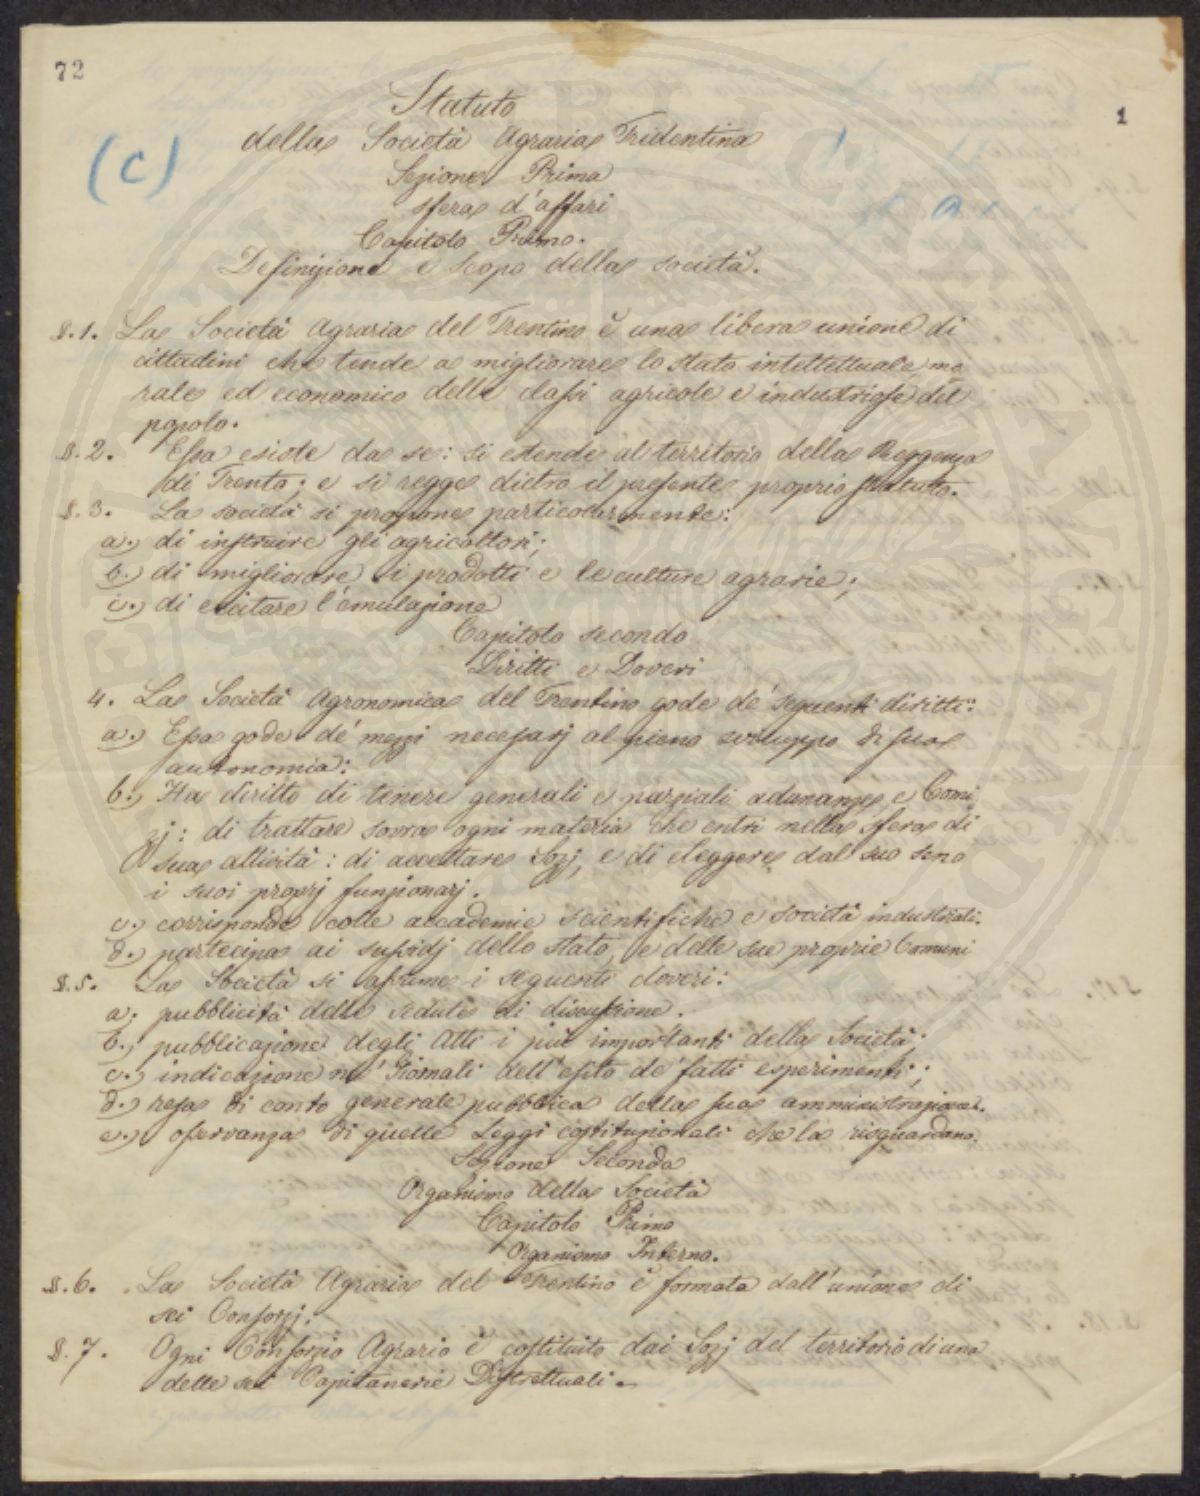 72
1
(c)
Statuto
della Società Agraria Tridentina
Sezione Prima
sfera d'affari
Capitolo Primo.
Definizione e scopo della società.
§.1. La Società Agraria del Trentino è una libera unione di
cittadini che tende a migliorare lo stato intellettuale mo
rale ed economico delle classi agricole e industriose del
popolo.
§.2. Essa esiste da se: si estende al territorio della Reggenza
di Trento; e si regge dietro il presente proprio statuto.
§.3. La società si propone particolarmente:
a.) di instruire gli agricoltori;
b.) di migliorare i prodotti e le culture agrarie;
c.) di eccitare l'emulazione
Capitolo secondo
Diritti e Doveri
4. La Società Agronomica del Trentino gode de' seguenti diritti:
a.) Essa gode de' mezzi necessarj al pieno sviluppo di sua
autonomia:
b.) Ha diritto di tenere generali e parziali adunanze e Comi
zj: di trattare sovra ogni materia che entri nella sfera di
sua attività: di accettare Sozj, e di eleggere dal suo seno
i suoi proprj funzionarj.
c.) corrisponde colle accademie scientifiche e società industriali.
d.) partecipa ai sussidj dello stato, e delle sue proprie Comuni
§.5. La Società si assume i seguenti doveri:
a. pubblicità delle sedute di discussione.
b.) pubblicazione degli Atti i più importanti della Società;
c.) indicazione ne' Giornali dell'esito de' fatti esperimenti;
d.) resa di conto generale pubblica della sua amministrazione.
e.) osservanza di quelle Leggi costituzionali che la risguardano.
Sezione Seconda
Organismo della Società
Capitolo Primo
Organismo Interno.
§.6. La Società Agraria del Trentino è formata dall'unione di
sei Consorzj.
§.7. Ogni Consorzio Agrario è costituito dai Sozj del territorio di una
delle sei Capitanerie Distrettuali.